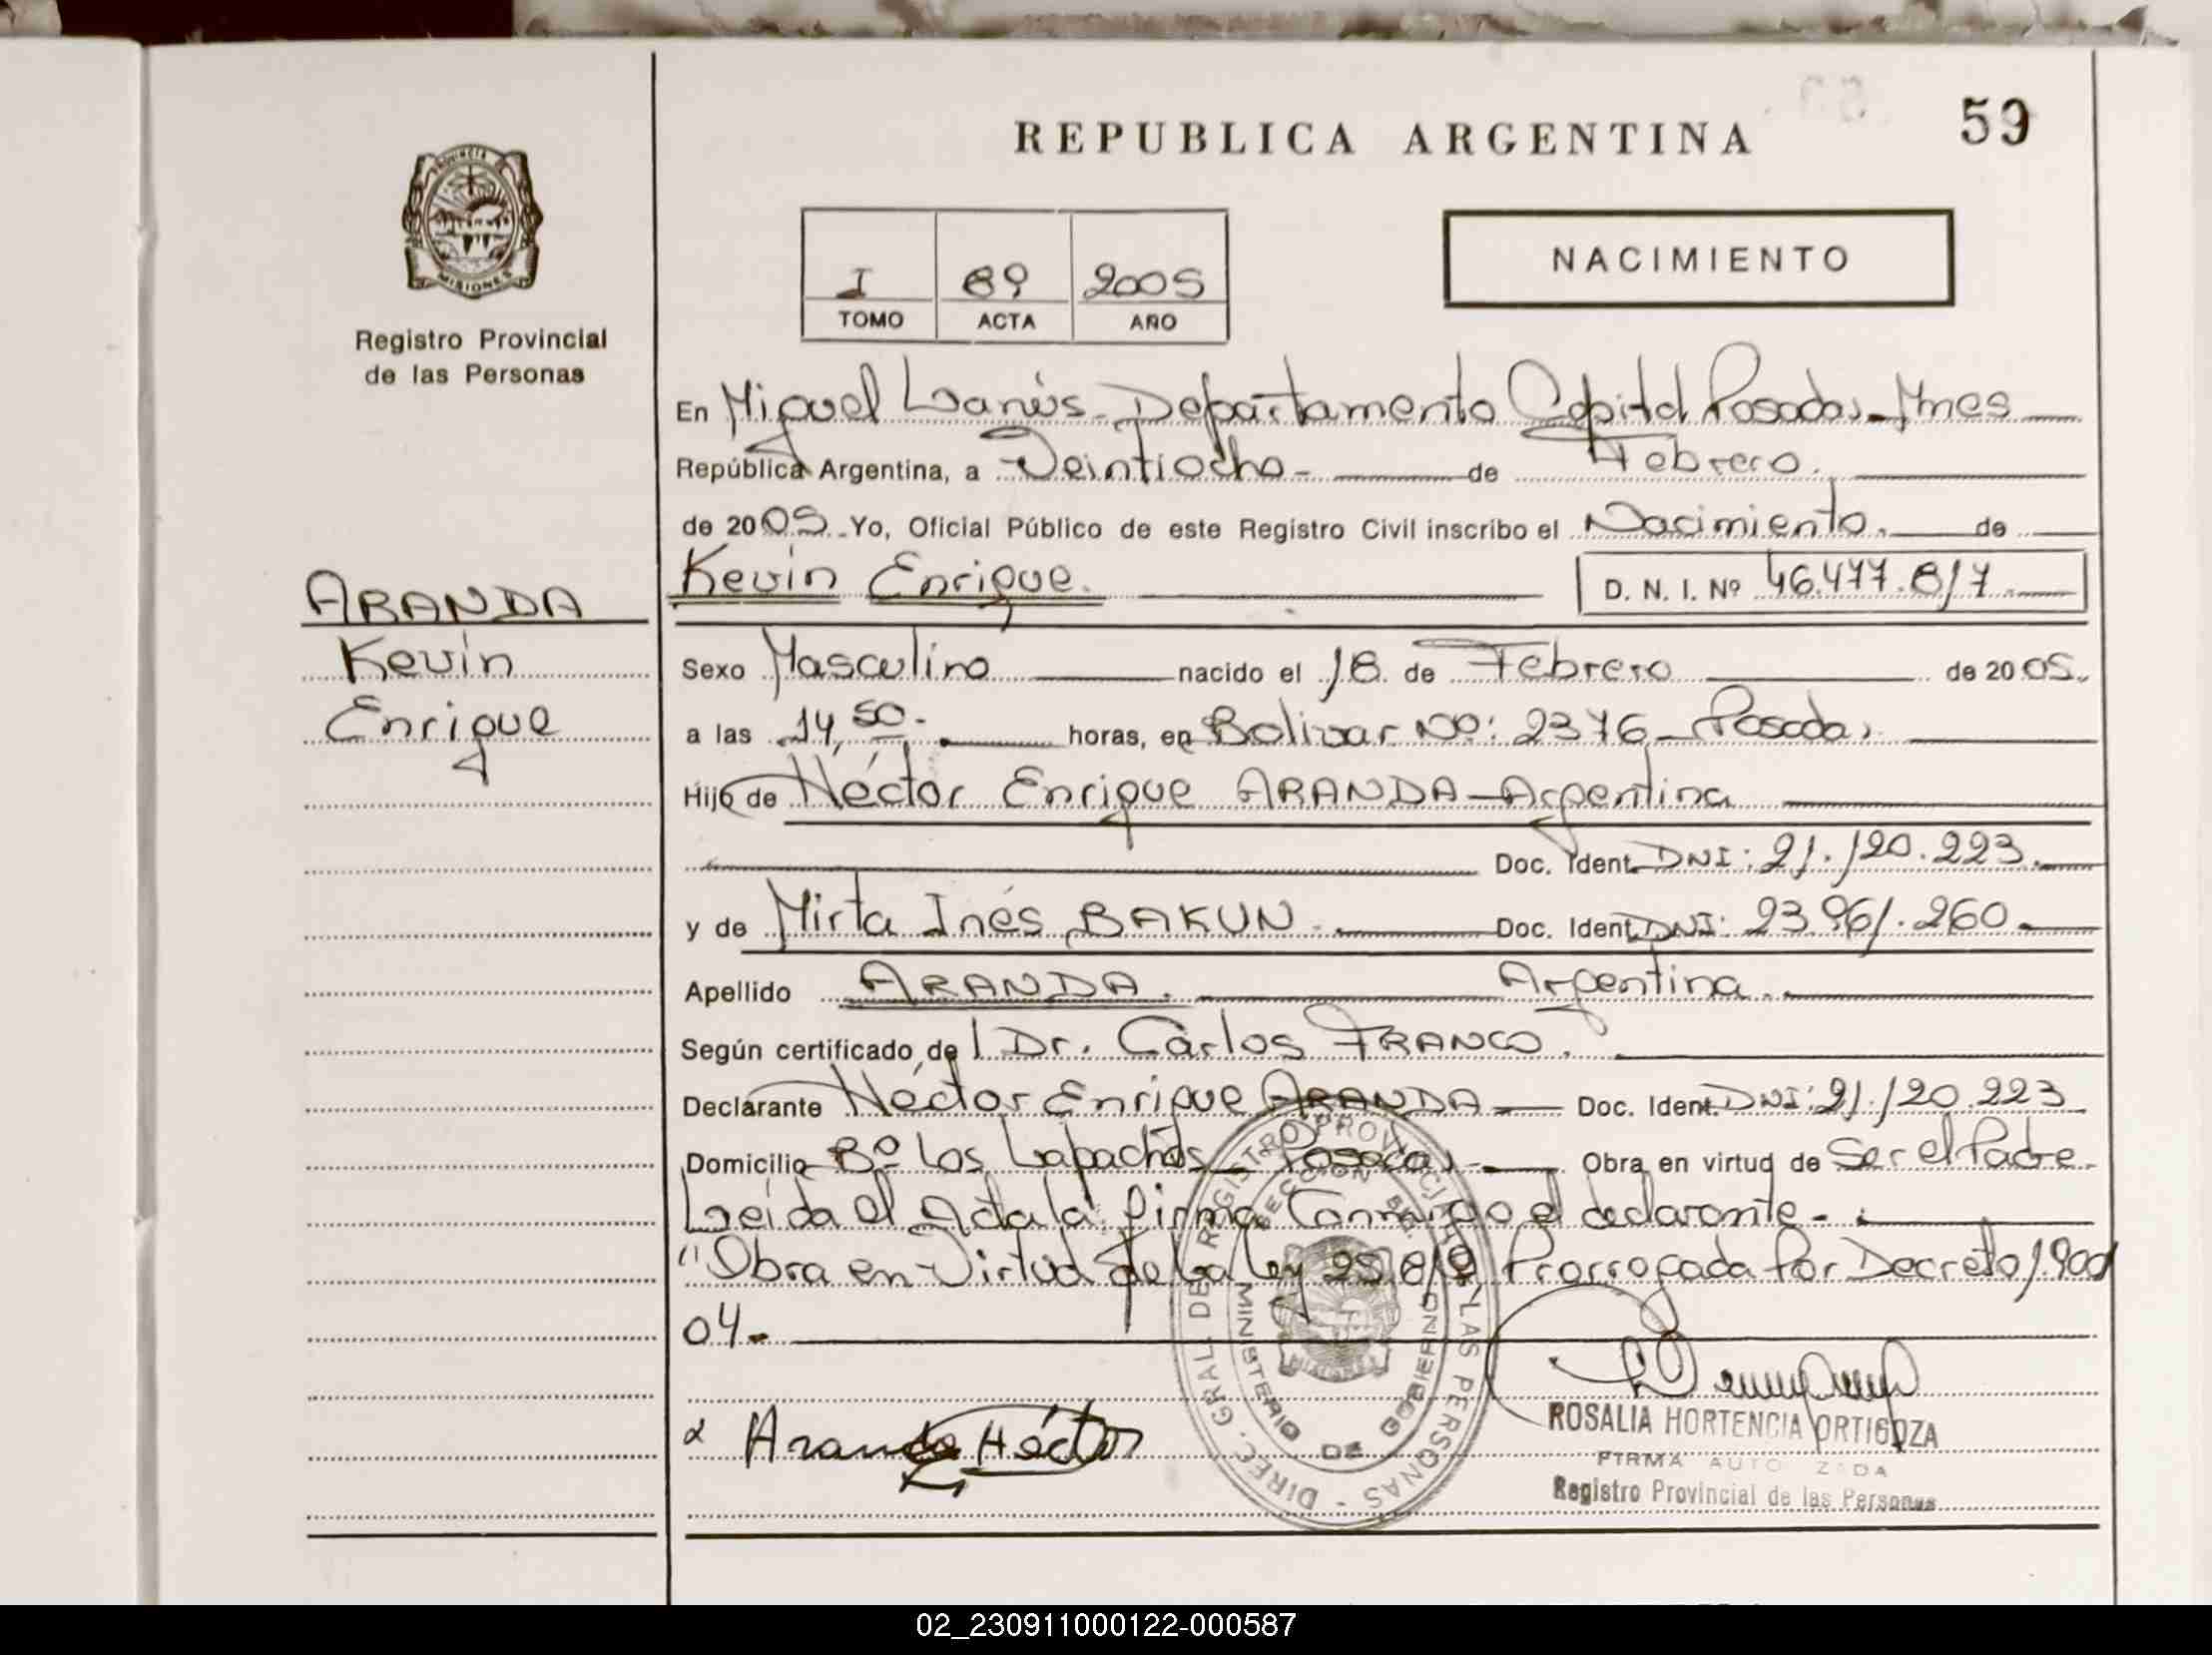 REPUBLICA ARGENTINA
59
PROVINCIA
MISIONES
Registro Provincial
de las Personas
I 89 2005
TOMO ACTA AÑO
NACIMIENTO
En Miguel Lanús - Departamento Capital Posadas - Mnes
República Argentina, a Veintiocho - de Febrero.
de 2005 - Yo, Oficial Público de este Registro Civil inscribo el Nacimiento. de
Kevin Enrique. D. N. I. Nº 46.477.817
ARANDA
Kevin
Enrique
Sexo Masculino nacido el 18 de Febrero de 2005.
a las 14,50. horas, en Bolivar Nº: 2376 - Posadas
Hijo de Néctor Enrique ARANDA - Argentina
Doc. Ident. DNI: 21.120.223.
y de Mirta Inés BAKUN. Doc. Ident. DNI: 23.961.260
Apellido ARANDA. Argentina.
Según certificado de l Dr. Carlos FRANCO.
Declarante Néctor Enrique ARANDA Doc. Ident. DNI: 21.120.223
Domicilio Bº Los Lapachos - Posadas - Obra en virtud de Ser el Padre
Leída el Acta la firma Conmigo el declarante -.
"Obra en Virtud de la Ley 25.819 Prorrogada Por Decreto 1.900
04-
Aranda Héctor
DIREC. GRAL. DE REGISTRO PROVINCIAL DE LAS PERSONAS -
MINISTERIO DE GOBIERNO
ROSALIA HORTENCIA ORTIGOZA
FIRMA AUTO ZADA
Registro Provincial de las Personas
02_230911000122-000587